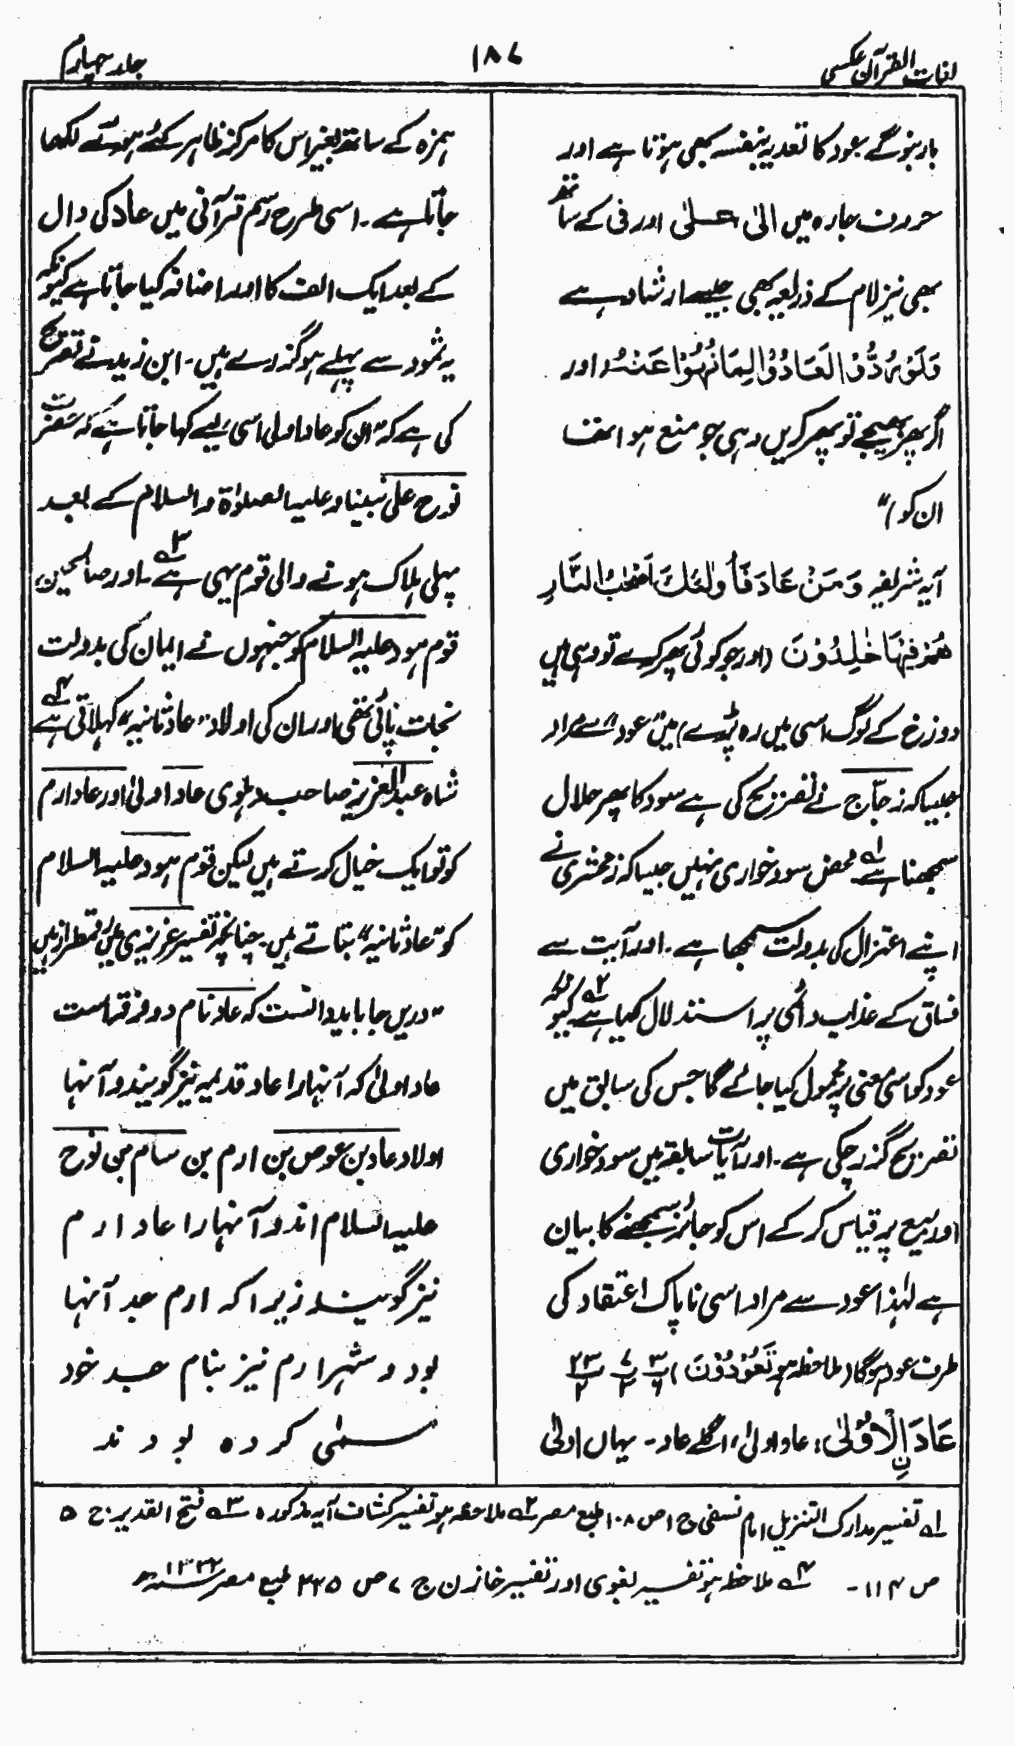 لغات القرآن عکسی
۱۸۷
جلد چہارم
باز ہو گے عود کا تعدیہ بنفسہ بھی ہوتا ہے اور
حروف جارہ میں الیٰ، علیٰ اور فی کے ساتھ
بھی نیز لام کے ذریعہ بھی جیسے ارشاد ہے
وَلَوْ رُدُّوْا لَعَادُوْا لِمَا نُهُوْا عَنْهُ (اور
اگر پھر بھیجے تو پھر کریں وہی جو منع ہوا تھا
ان کو)"
آیہ شریفہ وَمَنْ عَادَ فَأُولٰئِكَ اَصْحٰبُ النَّارِ
هُمْ فِيْهَا خٰلِدُوْنَ (اور جو کوئی پھر کرے تو وہی ہیں
دوزخ کے لوگ اسی میں رہ پڑے) میں "عود" سے مراد
جیسا کہ زجّاج نے تصریح کی ہے سود کا پھر حلال
سمجھنا ہے لہ۱ محض سود خواری نہیں جیسا کہ زمخشری نے
اپنے اعتزال کی بدولت سمجھا ہے۔ اور آیت سے
فساق کے عذاب دائمی پر استدلال کیا ہے لہ۲ کیونکہ
عود کو اسی معنی پر محمول کیا جائے گا جس کی سابق میں
تصریح گزر چکی ہے۔ اور آیات سابقہ میں سود خواری
اور بیع پر قیاس کر کے اس کو جائز سمجھنے کا بیان
ہے لہٰذا عود سے مراد اسی ناپاک اعتقاد کی
طرف عود ہوگا (ملاحظہ ہو تَعُوْدُوْنَ)
عَادَ نِ الْاُوْلٰی: عاد اولیٰ، اگلے عاد۔ یہاں اولیٰ
ہمزہ کے ساتھ بغیر اس کا مرکز ظاہر کئے ہوئے لکھا
جاتا ہے۔ اسی طرح رسم قرآنی میں عاد کی دال
کے بعد ایک الف کا اور اضافہ کیا جاتا ہے کیونکہ
یہ ثمود سے پہلے ہو گزرے ہیں۔ ابن زید نے تصریح
کی ہے کہ "ان کو عاد اولی اسی لیے کہا جاتا ہے کہ حضرت
نوح علی نبینا و علیہ الصلوٰۃ والسلام کے بعد
پہلی ہلاک ہونے والی قوم یہی ہے لہ۳۔ اور صالحین
قوم ہود علیہ السلام کو جنہوں نے ایمان کی بدولت
نجات پائی تھی اور ان کی اولاد "عاد ثانیہ" کہلاتی ہے لہ۴
شاہ عبد العزیز صاحب دہلوی عاد اولیٰ اور عاد ارم
کو تو ایک خیال کرتے ہیں لیکن قوم ہود علیہ السلام
کو "عاد ثانیہ" بتاتے ہیں۔ چنانچہ تفسیر عزیزی میں رقمطراز ہیں
"دریں جا باید دانست کہ عاد نام دو فرقہ است
عاد اولیٰ کہ آنہا را عاد قدیمہ نیز گویند و آنہا
اولاد عاد بن عوص بن ارم بن سام بن نوح
علیہ السلام اند و آنہا را عاد ارم
نیز گویند زیرا کہ ارم جد آنہا
بود و شہر ارم نیز بنام جد خود
مسمٰی کردہ بودند
لہ۱ تفسیر مدارک التنزیل امام نسفی ج ۱ ص ۱۰۸ طبع مصر لہ۲ ملاحظہ ہو تفسیر کشاف آیہ مذکورہ، لہ۳ فتح القدیر: ج ۵
ص ۱۱۴۔ لہ۴ ملاحظہ ہو تفسیر بغوی اور تفسیر خازن ج ۷ ص ۲۲۵ طبع مصر